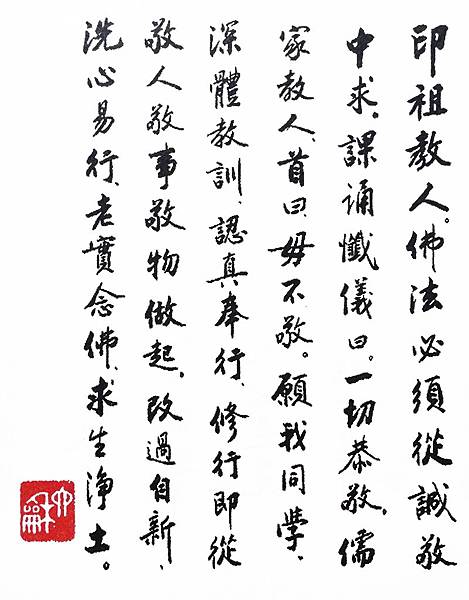 印祖教人。佛法必須從誠敬
中求。課誦懺儀曰。一切恭敬。儒
家教人、首曰毋不敬。願我同學、
深體教訓、認真奉行、修行即從
敬人敬事敬物做起。改過自新、
洗心易行、老實念佛、求生淨土。